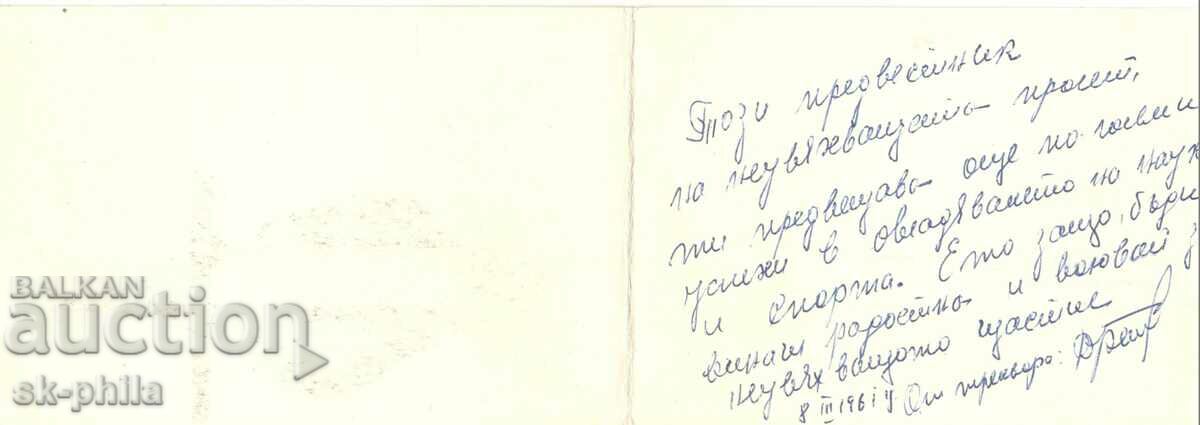 Този предвестник
на неувяхващата пролет,
ти предвещава още по големи
успехи в овладяването на наук
и спорта. Ето защо, бъди
винаги радостна и воювай з
неувяхващото щастие
8 III 1961 г. От треньора:
BALKAN
auction
sk-phila